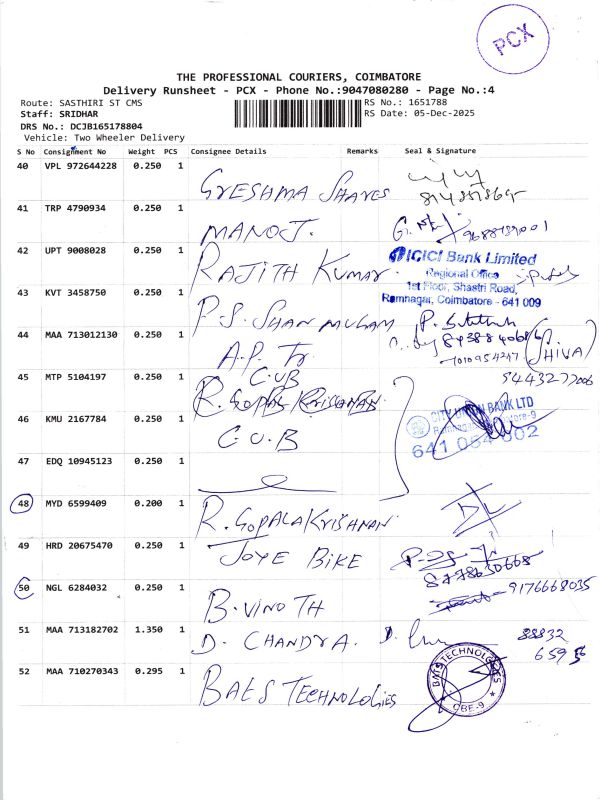 PCX
THE PROFESSIONAL COURIERS, COIMBATORE
Delivery Runsheet - PCX - Phone No.:9047080280 - Page No.:4
Route: SASTHIRI ST CMS
RS No.: 1651788
Staff: SRIDHAR
RS Date: 05-Dec-2025
DRS No.: DCJB165178804
Vehicle: Two Wheeler Delivery
S No Consignment No Weight PCS Consignee Details Remarks Seal & Signature
40 VPL 972644228 0.250 1 GRESHMA SHARES
41 TRP 4790934 0.250 1 MANOJ.
42 UPT 9008028 0.250 1 RAJITH KUMAR. ICICI Bank Limited
Regional Office
1st Floor, Shastri Road,
Ramnagar, Coimbatore - 641 009
43 KVT 3458750 0.250 1 P.S. SHANMUGAM
44 MAA 713012130 0.250 1 A.P. Tr. (SHIVA)
C.U.B
9443277006
45 MTP 5104197 0.250 1 R. GOPALKRISHNAN
CITY UNION BANK LTD
46 KMU 2167784 0.250 1 C.U.B
47 EDQ 10945123 0.250 1
48 MYD 6599409 0.200 1 R. GOPALAKRISHNAN
49 HRD 20675470 0.250 1 JOYE BIKE
8778630668
50 NGL 6284032 0.250 1 B. VINOTH 9176668035
51 MAA 713182702 1.350 1 D. CHANDRA. 88832
52 MAA 710270343 0.295 1 BATS TECHNOLOGIES
BATS TECHNOLOGIES
CBE-9